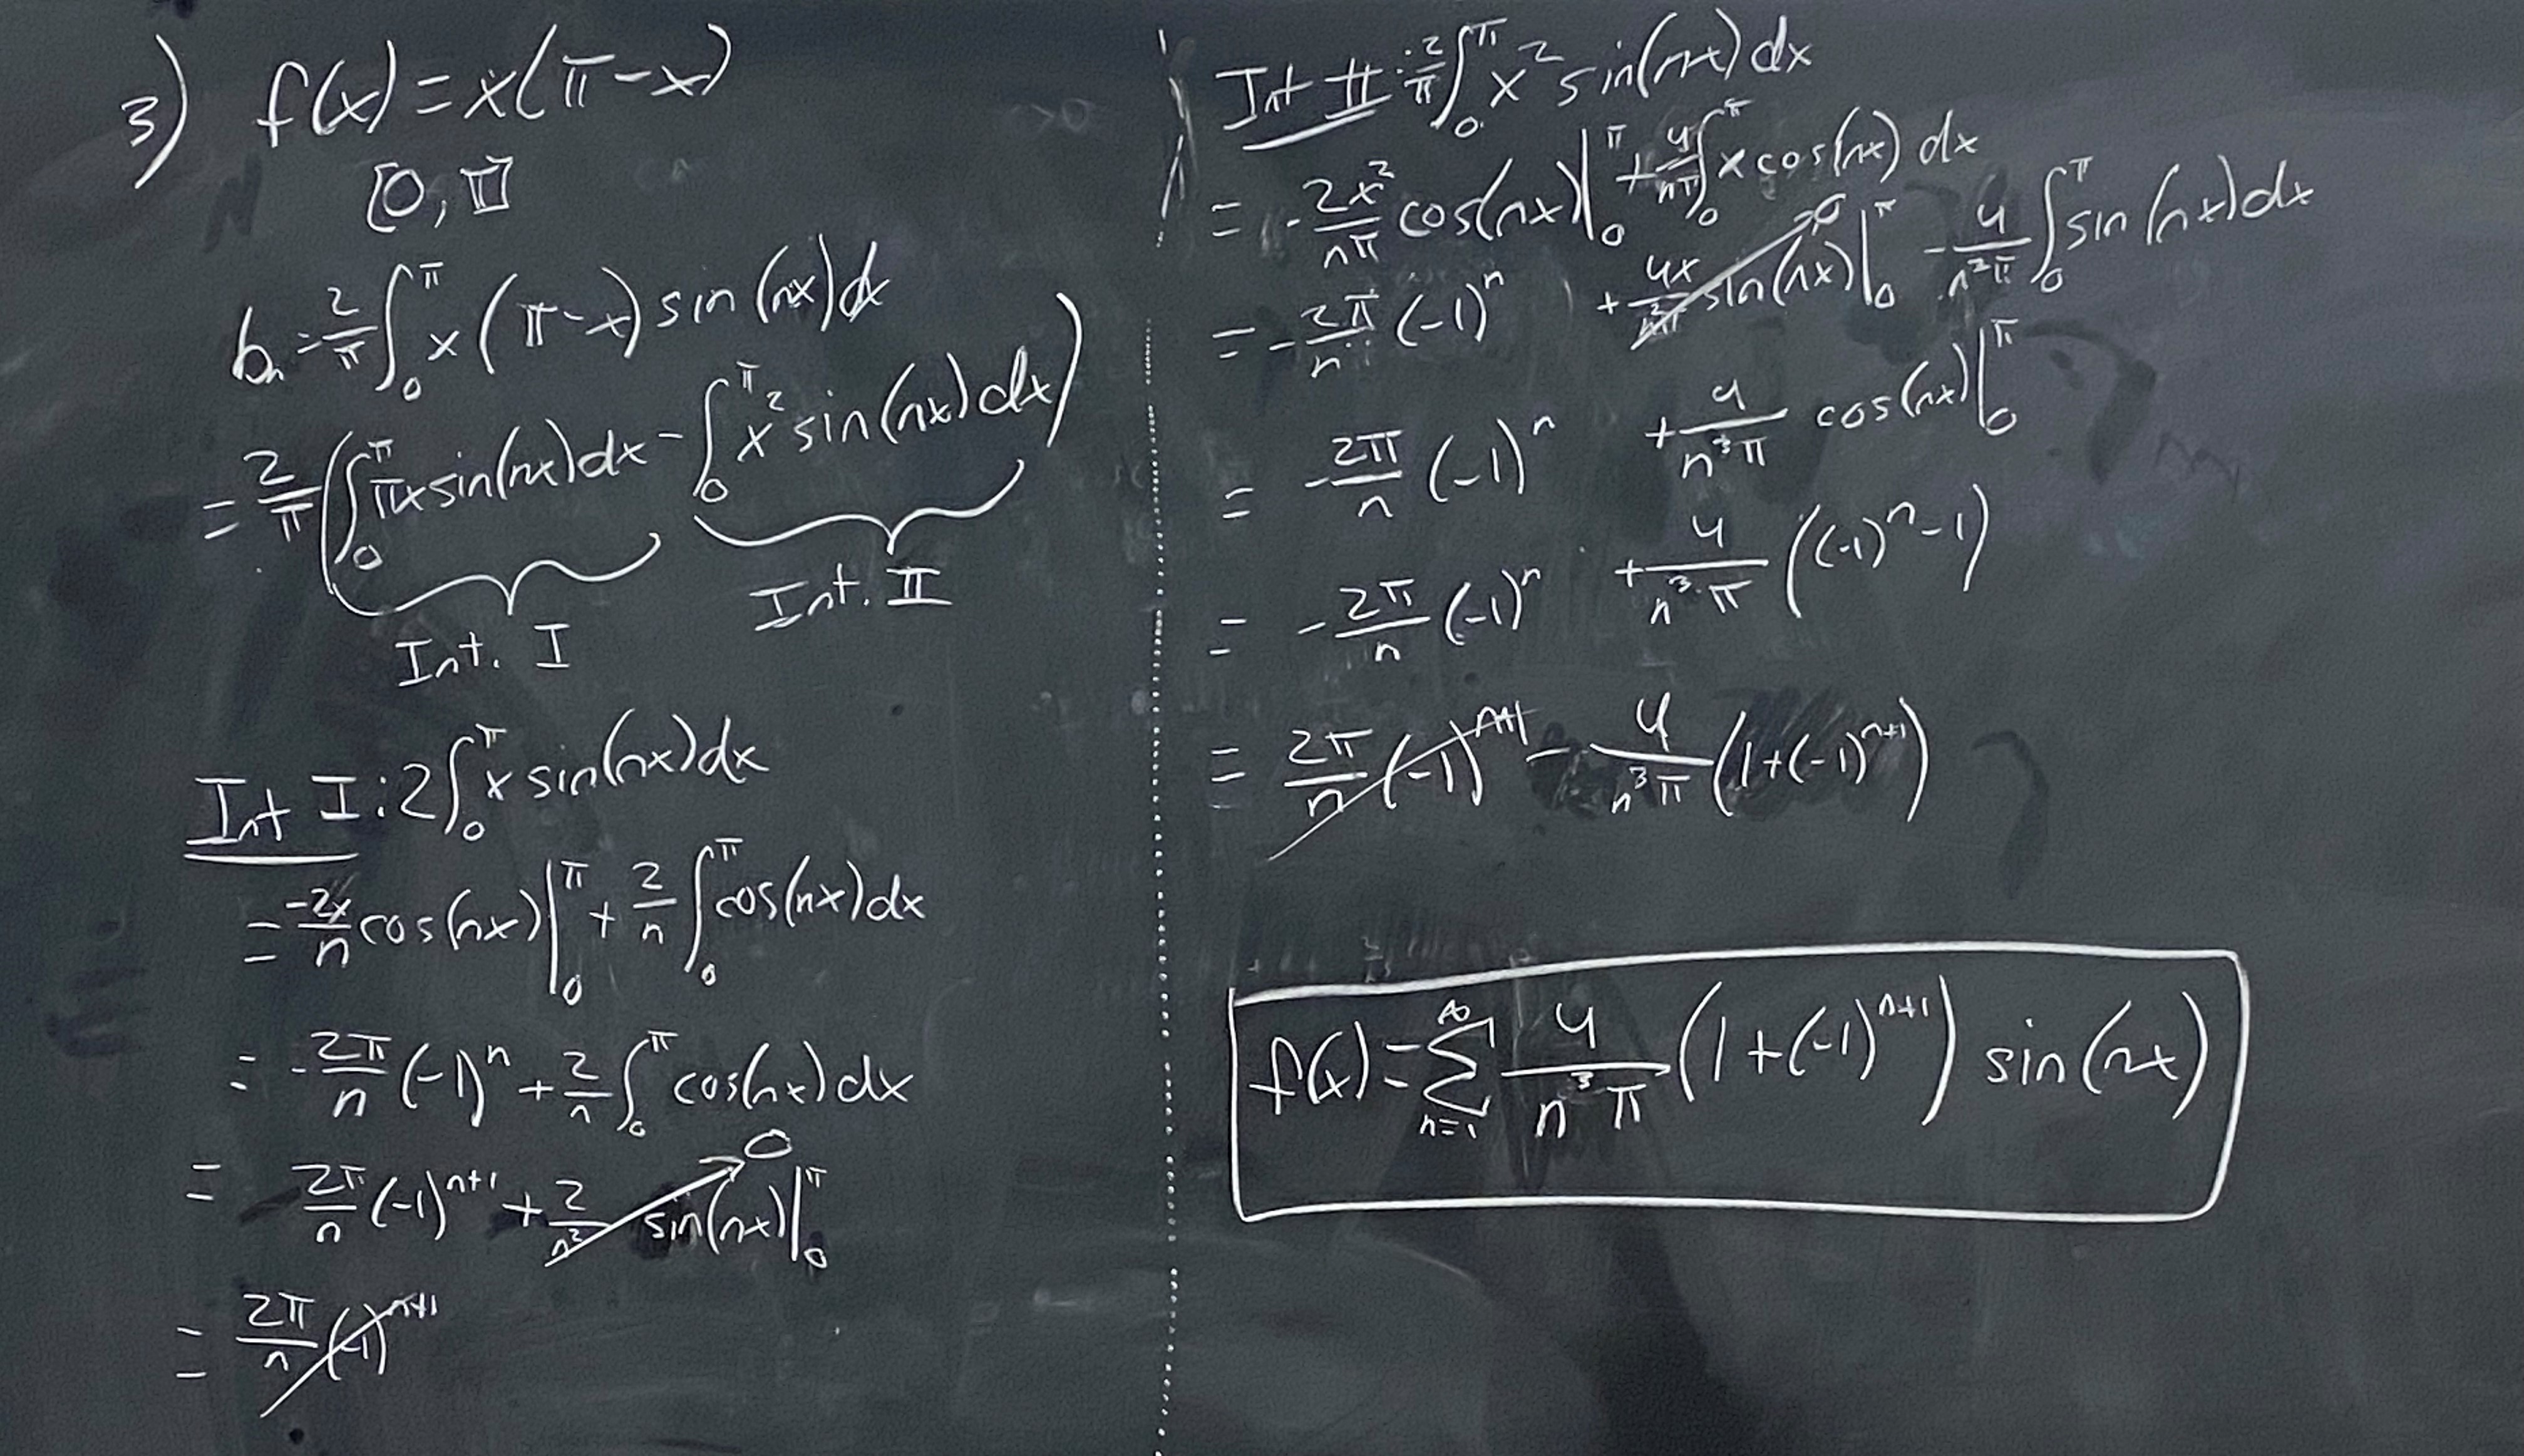 3) f(x) = x(π-x)
[0, π]
bₙ = 2/π ∫₀^π x(π-x) sin(nx) dx
= 2/π (∫₀^π πx sin(nx) dx - ∫₀^π x² sin(nx) dx)
Int. I
Int. II
Int I: 2∫₀^π x sin(nx) dx
= -2x/n cos(nx)|₀^π + 2/n ∫₀^π cos(nx) dx
= -2π/n (-1)^n + 2/n ∫₀^π cos(nx) dx
= 2π/n (-1)^(n+1) + 2/n² sin(nx)|₀^π → 0
= 2π/n (-1)^(n+1)
Int II: 2/π ∫₀^π x² sin(nx) dx
= -2x²/(nπ) cos(nx)|₀^π + 4/(nπ) ∫₀^π x cos(nx) dx
= -2π/n (-1)^n + 4x/(n²π) sin(nx)|₀^π → 0 - 4/(n²π) ∫₀^π sin(nx) dx
= -2π/n (-1)^n + 4/(n³π) cos(nx)|₀^π
= -2π/n (-1)^n + 4/(n³π) ((-1)^n - 1)
= 2π/n (-1)^(n+1) - 4/(n³π) (1+(-1)^(n+1))
f(x) = ∑_(n=1)^∞ 4/(n³π) (1+(-1)^(n+1)) sin(nx)